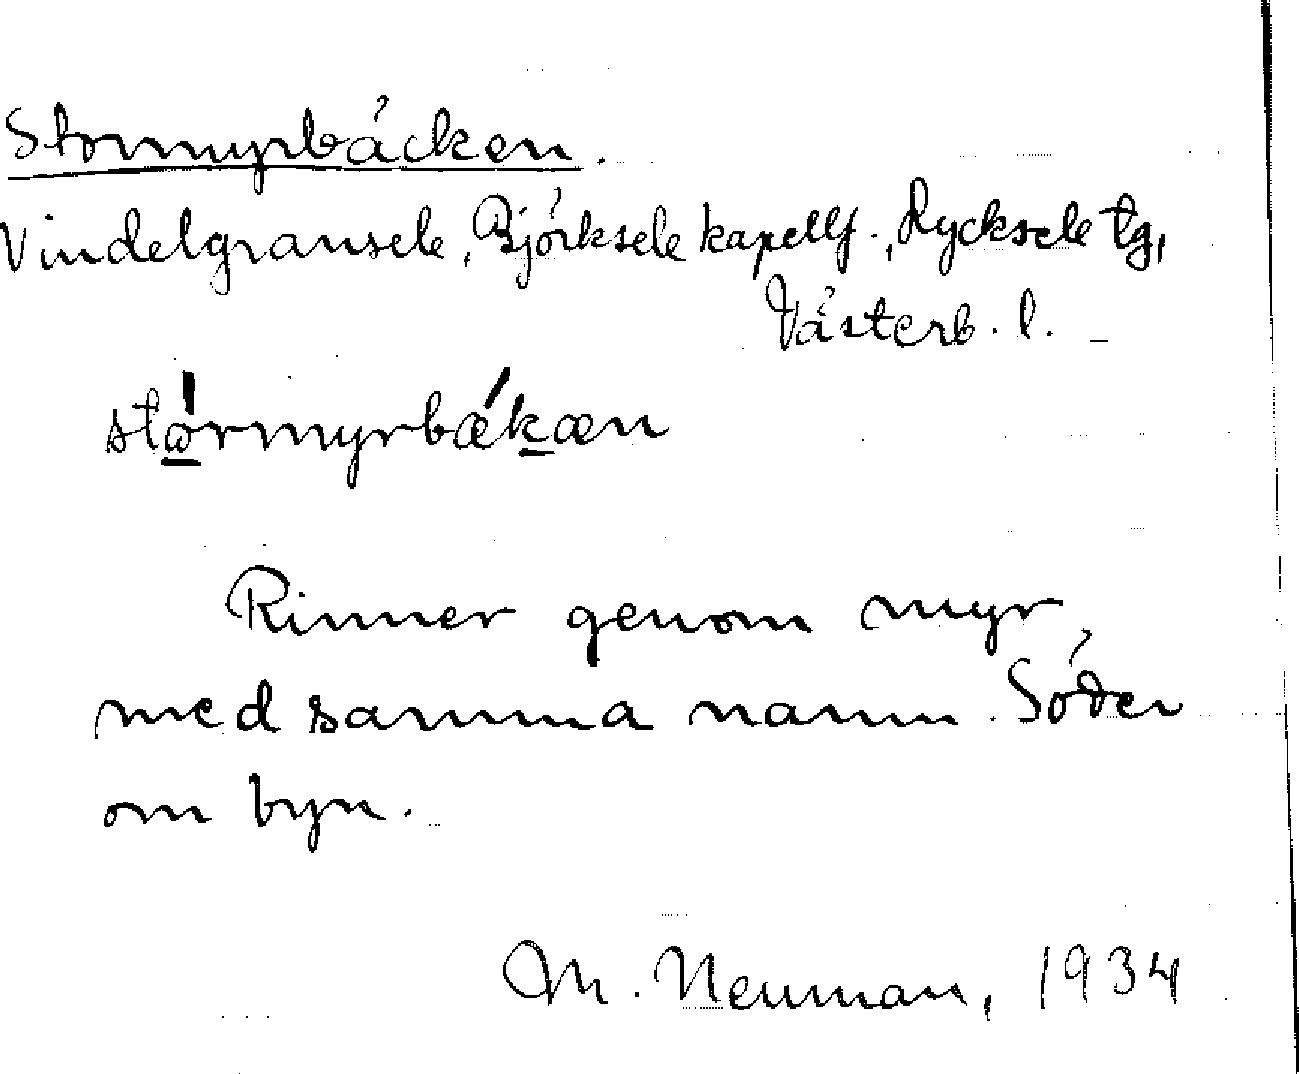 Stormyrbäcken.
Vindelgransele, Björksele kapellf., Lycksele tg,
Västerb. l.
stǿrmyrbǽkæn
Rinner genom myr
med samma namn. Söder
om byn.
M. Neuman, 1934